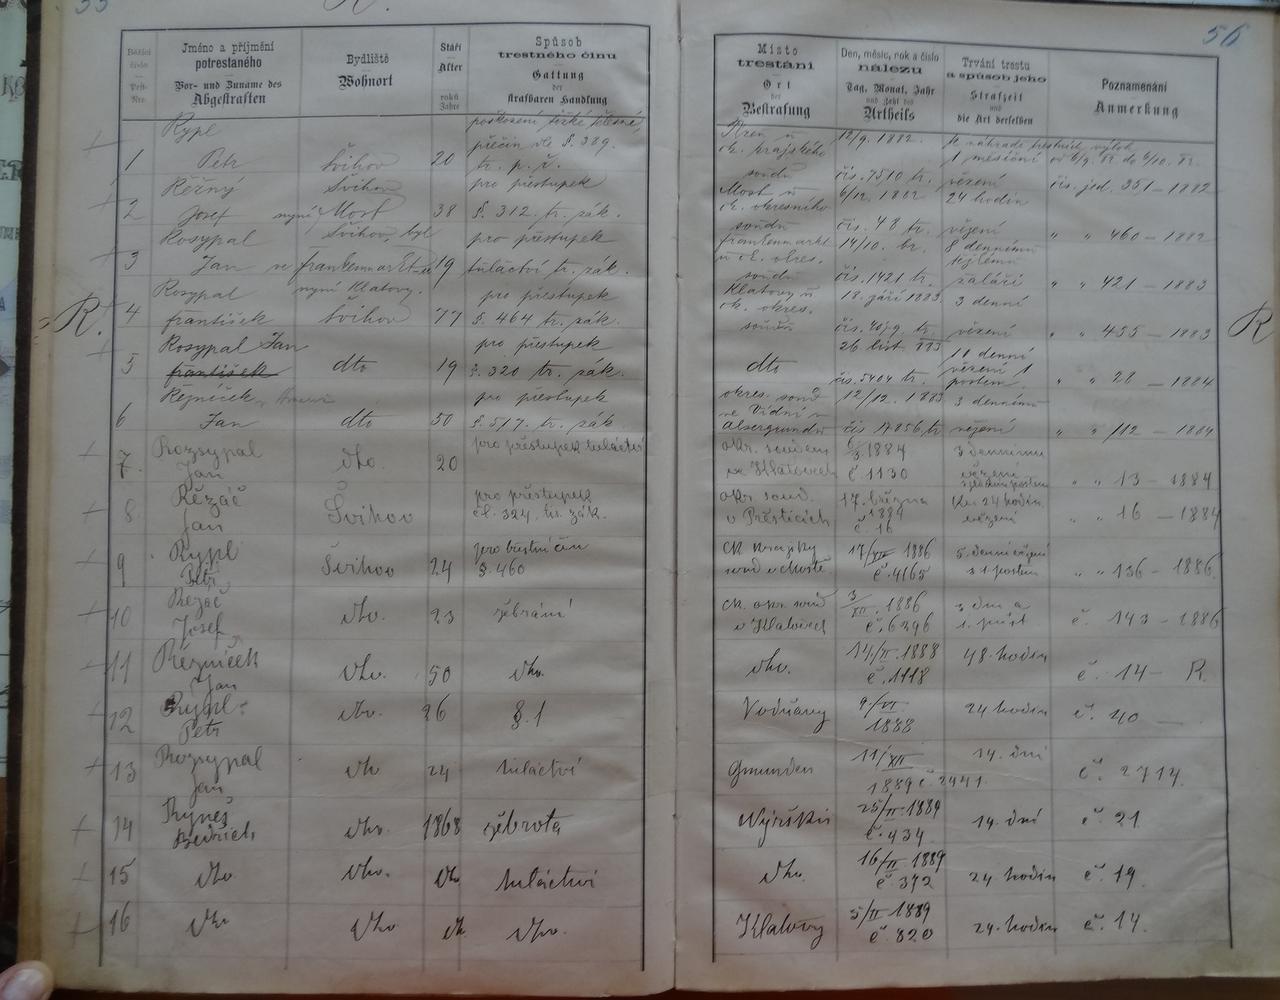 55
56
Běžící číslo Post-Nro.
Jméno a příjmění potrestaného
Vor- und Zuname des Abgestraften
Bydliště
Wohnort
Stáří
Alter
roků
Jahre
Spůsob trestného činu
Gattung der strafbaren Handlung
Místo trestání
Ort der Bestrafung
Den, měsíc, rok a číslo nálezu
Tag, Monat, Jahr und Zahl des Urtheils
Trvání trestu a spůsob jeho
Strafzeit und die Art derselben
Poznamenání
Anmerkung
R.
R
Rypl
1 Petr Švihov 20 poškození těžké tělesné, přečin dle §. 389. tr. p. ř. ok. krajského soudu 12/9. 1882. čís. 7510 tr. 1 měsíční vězení čís. jed. 351 – 1882
Řěžný Švihov pro přestupek
2 Josef nyní Most 38 §. 312. tr. zák. Most u ok. okresního soudu 6/12. 1882 čís. 48 tr. 24 hodin vězení " " 460 – 1882
Rosypal Švihov, byl pro přestupek
3 Jan ve Frankenmarkt 19 tuláctví tr. zák. Frankenmarkt u ok. okres. soudu 14/10. čís. 1421 tr. 8 denní žaláři " " 421 – 1883
Rosypal nyní Klatovy. pro přestupek
4 František Švihov 77 §. 464 tr. zák. Klatovy u ok. okres. soudu 18. září 1883 3 denní vězení " " 455 – 1883
Rosypal Jan pro přestupek
5 František dto 19 §. 320 tr. zák. dto 26. list. 883 čís. 5404 tr. denní vězení 1 postem " " 28 – 1884
Řězníček pro přestupek
6 Jan dto 50 §. 517. tr. zák okres. soud ve Vídni Alsergrund 12/12. 1883 čís 17856 tr 3 denní vězení " " 112 – 1884
7. Rozsypal Jan dto. 20 pro přestupek tuláctví okr. soudem v Klatovech 1884 č 1130 3 denním vězení " " 13 – 1884
8. Řězáč Jan Švihov pro přestupek čl. 324. tr. zák. okr. soud. v Přešticích 17. března 1884 č. 16 24 hodin. vězení " " 16 – 1884
9 Rypl Petr Švihov 24 pro trestní čin §. 460 ck. krajský soud 17/XII 1886 č. 4165 5 denní vězení s 1. postem " " 136 – 1886
10 Řezáč Josef dto. 23 žebrání ck. okr. soud v Klatovech 3/XII. 1886 č. 6296 3 dny a 1. půst. č. 143 – 1886
11 Řezníček Jan dto. 50 dto. dto. 14/II. 1888 č. 1118 48. hodin č. 14 – R.
12 Rypl Petr dto. 26 §. 1 Vodňany 9/VI 1888 24 hodin č. 40 —
13 Rozsypal Jan dto 24 tuláctví Gmunden 11/XII 1889 č. 2441. 14. dní č. 2714.
14 Ryneš Bedřich dto. 1868 žebrota Nýrsko 25/II. 1889 č. 434 14. dní č. 21
15 dto dto. dto tuláctví dto. 16/II. 1889 č. 372 24 hodin č. 19.
16 dto dto dt. dto. Klatovy 5/II 1889 č. 820 24. hodin č. 14.